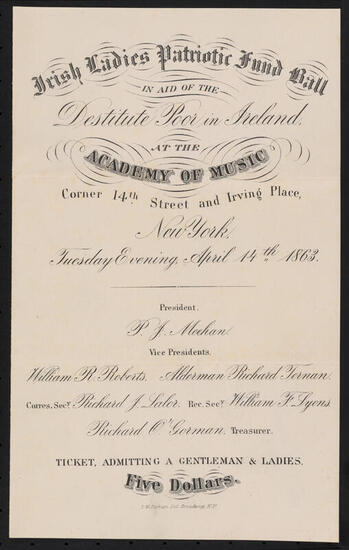 Irish Ladies Patriotic Fund Ball
IN AID OF THE
Destitute Poor in Ireland,
AT THE
ACADEMY OF MUSIC
Corner 14th Street and Irving Place,
New York,
Tuesday Evening, April 14th 1863.
President,
P. J. Meehan
Vice Presidents,
William R. Roberts, Alderman Richard Tornan
Corres. Secy Richard J. Lalor, Rec. Secy William F. Lyons,
Richard O'Gorman, Treasurer.
TICKET, ADMITTING A GENTLEMAN & LADIES,
Five Dollars.
Broadway, N.Y.